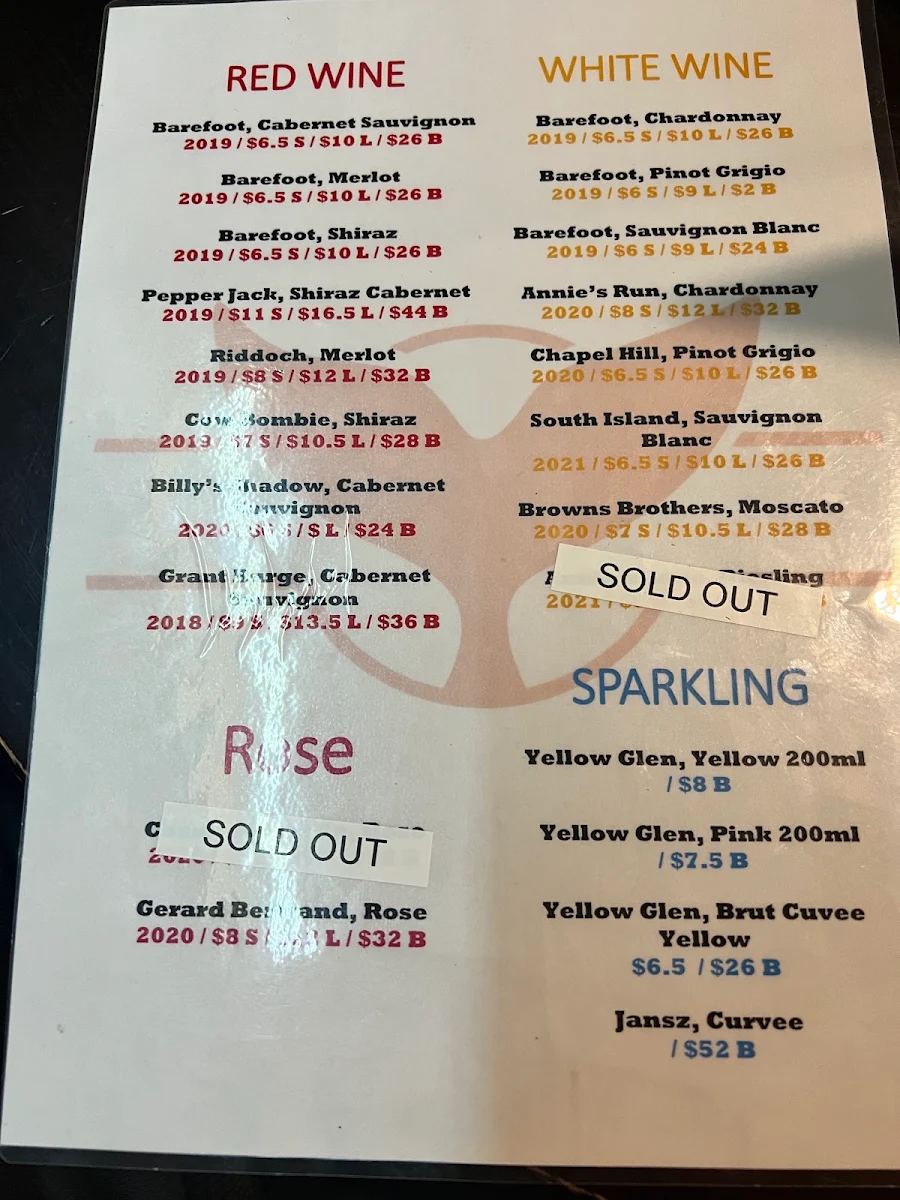 RED WINE
Barefoot, Cabernet Sauvignon
2019 / $6.5 S / $10 L / $26 B
Barefoot, Merlot
2019 / $6.5 S / $10 L / $26 B
Barefoot, Shiraz
2019 / $6.5 S / $10 L / $26 B
Pepper Jack, Shiraz Cabernet
2019 / $11 S / $16.5 L / $44 B
Riddoch, Merlot
2019 / $8 S / $12 L / $32 B
Cow Bombie, Shiraz
2019 / $7 S / $10.5 L / $28 B
Billy's Shadow, Cabernet
Sauvignon
2020 / S / $ L / $24 B
Grant Burge, Cabernet
Sauvignon
2018 / $9 S / $13.5 L / $36 B
Rose
SOLD OUT
Gerard Bertrand, Rose
2020 / $8 S / L / $32 B
WHITE WINE
Barefoot, Chardonnay
2019 / $6.5 S / $10 L / $26 B
Barefoot, Pinot Grigio
2019 / $6 S / $9 L / $2 B
Barefoot, Sauvignon Blanc
2019 / $6 S / $9 L / $24 B
Annie's Run, Chardonnay
2020 / $8 S / $12 L / $32 B
Chapel Hill, Pinot Grigio
2020 / $6.5 S / $10 L / $26 B
South Island, Sauvignon
Blanc
2021 / $6.5 S / $10 L / $26 B
Browns Brothers, Moscato
2020 / $7 S / $10.5 L / $28 B
Riesling
SOLD OUT
2021 /
SPARKLING
Yellow Glen, Yellow 200ml
/ $8 B
Yellow Glen, Pink 200ml
/ $7.5 B
Yellow Glen, Brut Cuvee
Yellow
$6.5 / $26 B
Jansz, Curvee
/ $52 B